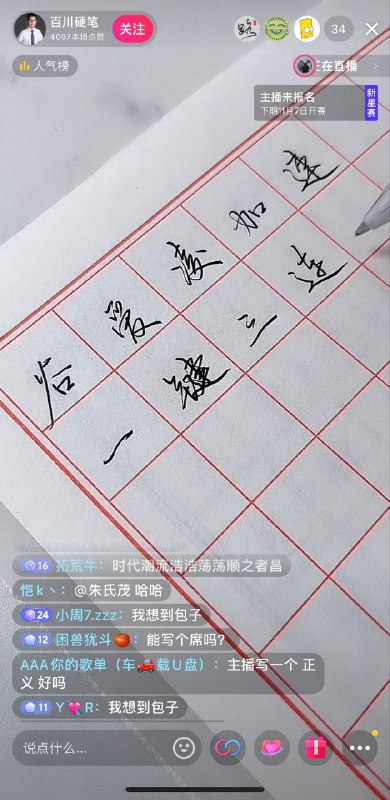 百川硬笔
4097本场点赞
关注
34
人气榜
正在直播
主播未报名
下期11月7日开赛
新星赛
谷爱凌加速
一键三连
16 拓荒牛：时代潮流浩浩荡荡顺之者昌
恺k丶：@朱氏茂 哈哈
24 小周7.zzz：我想到包子
12 困兽犹斗🍅：能写个席吗？
AAA你的歌单（车🏎️载U盘）：主播写一个 正
义 好吗
11 Y💘R：我想到包子
说点什么...